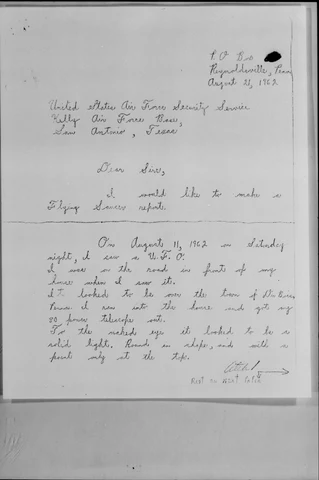 P O Box
Reynoldsville, Penn
August 21, 1962
United States Air Force Security Service
Kelly Air Force Base,
San Antonio, Texas
Dear Sirs,
I would like to make a
Flying Saucer reports.
On August 11, 1962 on Saturday
night, I saw a U.F.O.
I was on the road in fronts of my
house when I saw it.
It looked to be over the town of Du Bois,
Penna. I ran into the house and got my
80 power telescope out.
To the naked eye it looked to be a
solid light. Round in shape, and with a
point only at the top.
Next